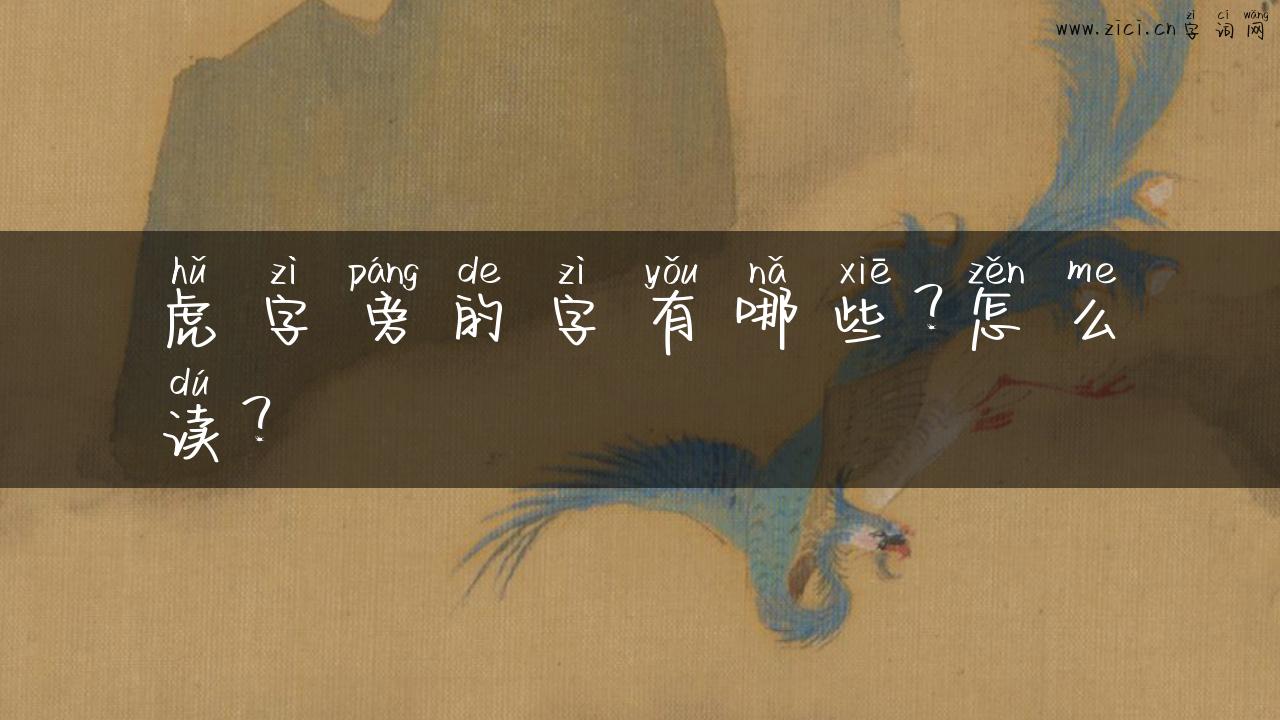 www.zici.cn 字词网
zì cí wǎng
hǔ zì páng de zì yǒu nǎ xiē zěn me
虎字旁的字有哪些？怎么
dú
读？